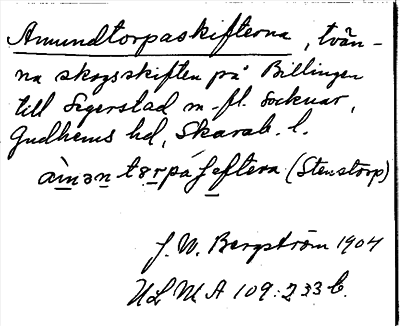 Amundtorpaskifterna, tvän-
na skogsskiften på Billingen
till Segerstad m. fl. socknar,
Gudhems hd, Skarab. l.
àmən tɔrpáʃeftera (Stenstorp)
J. W. Bergström 1904
ULMA 109:233 b.